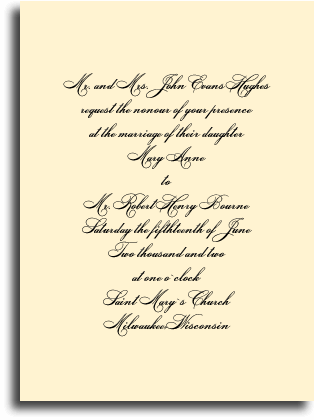 Mr. and Mrs. John Evans Hughes
request the nonour of your presence
at the marriage of their daughter
Mary Anne
to
Mr. Robert Henry Bourne
Saturday the fifthteenth of June
Two thousand and two
at one o`clock
Saint Mary`s Church
Milwaukee, Wisconsin